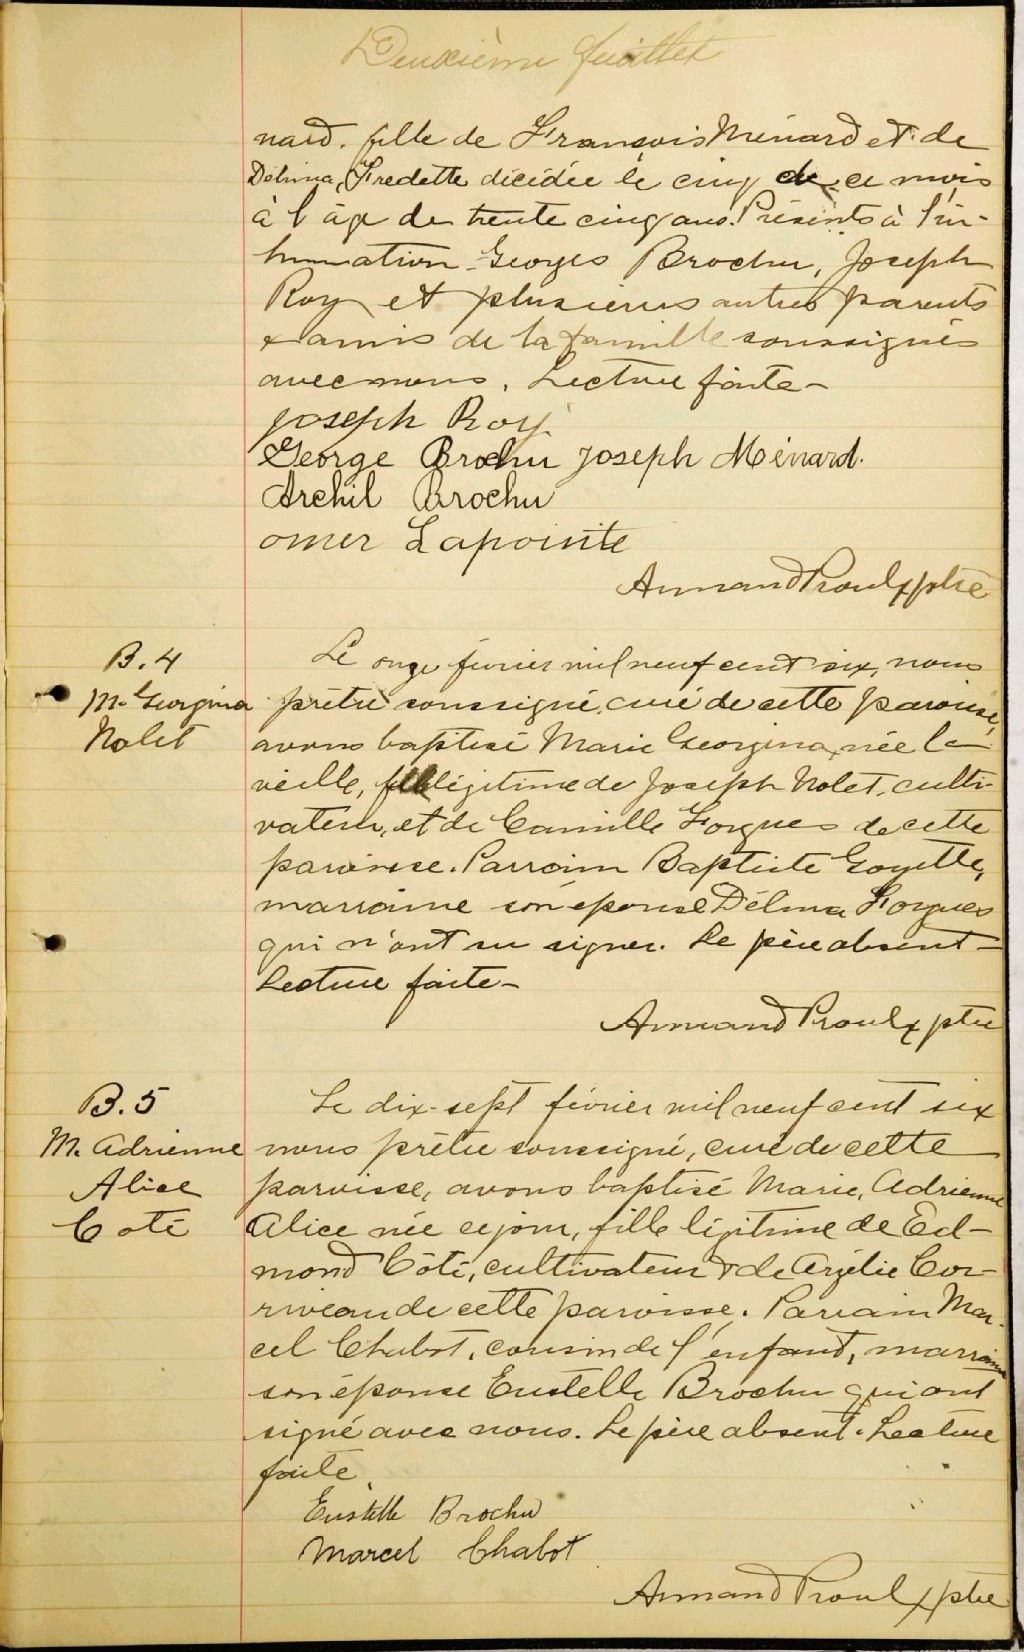 Deuxième feuillet
nard. fille de François Ménard et de
Délima Fredette décédée le cinq de ce mois
à l'âge de trente cinq ans. Présents à l'in-
humation Georges Brochu, Joseph
Roy et plusieurs autres parents
& amis de la famille soussignés
avec nous. Lecture faite-
Joseph Roy
George Brochu Joseph Ménard.
Archil Brochu
omer Lapointe
Armand Proulx ptre
B.4
M. Georgina
Nolet
Le onze février mil neuf cent six, nous
prêtre soussigné, curé de cette paroisse,
avons baptisé Marie Georgina, née la
veille, fille légitime de Joseph Nolet, culti-
vateur, et de Camille Forgues de cette
paroisse. Parrain Baptiste Goyette,
marraine son épouse Délima Forgues
qui n'ont su signer. Le père absent-
Lecture faite-
Armand Proulx ptre
B.5
M. Adrienne
Alice
Coté
Le dix-sept février mil neuf cent six
nous prêtre soussigné, curé de cette
paroisse, avons baptisé Marie, Adrienne
Alice née ce jour, fille légitime de Ed-
mond Côté, cultivateur & de Arzélie Cor-
riveau de cette paroisse. Parrain Mar-
cel Chabot, cousin de l'enfant, marraine
son épouse Eustelle Brochu qui ont
signé avec nous. Le père absent. Lecture
faite.
Eustelle Brochu
Marcel Chabot
Armand Proulx ptre